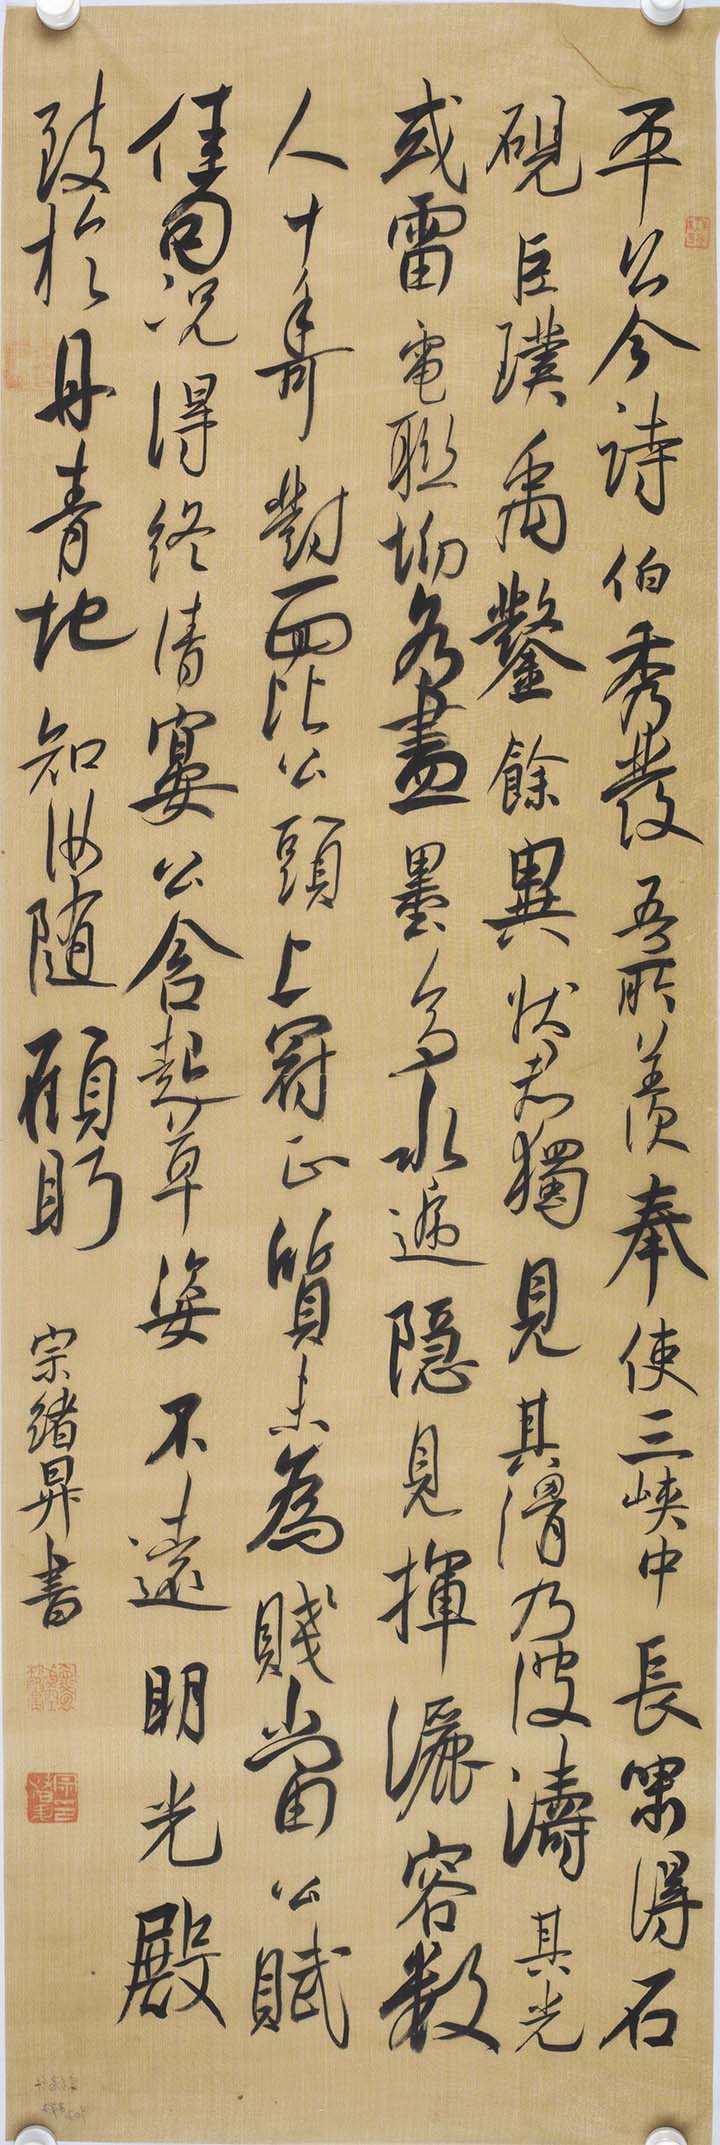 平公今詩伯秀發吾所羨奉使三峽中長嘯得石
硯巨璞禹鑿餘異狀君獨見其滑乃波濤其光
或雷電聯坳各盡墨多水遞隐見揮灑容數
人十手可對面比公頭上冠正質未為賤當公賦
佳句况得終清宴公含起草姿不遠明光殿
致於丹青地知汝随顧眄
宗緒昇書